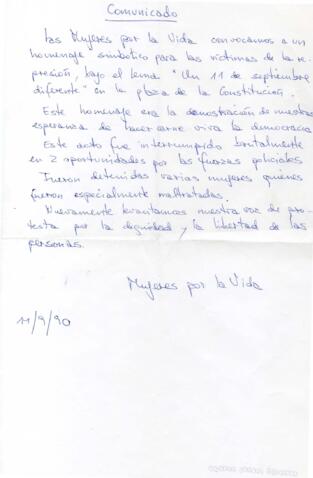 Comunicado
Las Mujeres por la Vida convocamos a un
homenaje simbólico para las víctimas de la re-
presión, bajo el lema "Un 11 de septiembre
diferente" en la plaza de la Constitución.
Este homenaje era la demostración de nuestra
esperanza de hacer carne viva la democracia
Este acto fue interrumpido brutalmente
en 2 oportunidades por las fuerzas policiales
Fueron detenidas varias mujeres quienes
fueron especialmente maltratadas.
Nuevamente levantamos nuestra voz de pro-
testa por la dignidad y la libertad de las
personas.
Mujeres por la Vida
11/9/90